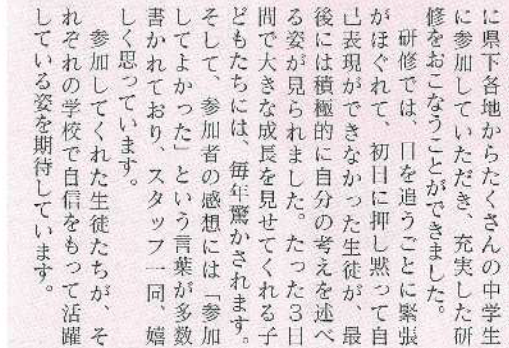 に県下各地からたくさんの中学生
に参加していただき、充実した研
修をおこなうことができました。
　研修では、日を追うごとに緊張
がほぐれて、初日に押し黙って自
己表現ができなかった生徒が、最
後には積極的に自分の考えを述べ
る姿が見られました。たった３日
間で大きな成長を見せてくれる子
どもたちには、毎年驚かされます。
そして、参加者の感想には「参加
してよかった」という言葉が多数
書かれており、スタッフ一同、嬉
しく思っています。
　参加してくれた生徒たちが、そ
れぞれの学校で自信をもって活躍
している姿を期待しています。